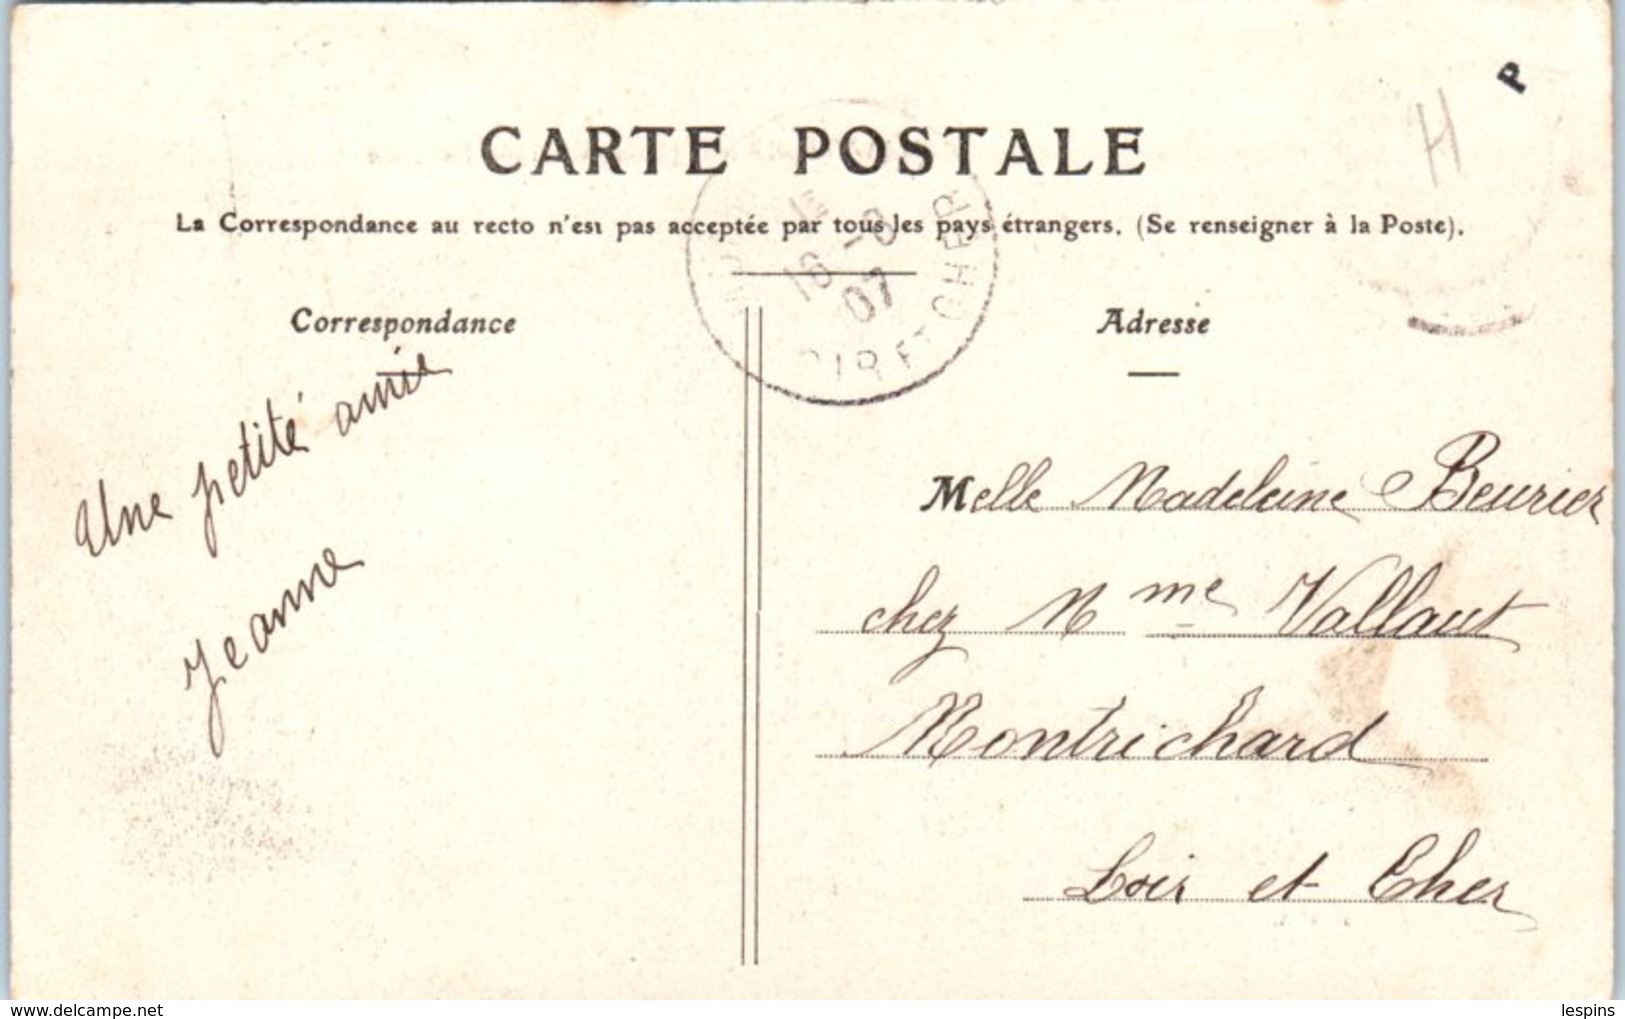 CARTE POSTALE
La Correspondance au recto n'est pas acceptée par tous les pays étrangers. (Se renseigner à la Poste).
Correspondance
Adresse
Une petite amie
Jeanne
Melle Madeleine Beurier
chez Mme Vallaut
Montrichard
Loir et Cher
16 - 8
07
LOIR ET CHER
H
P
www.delcampe.net
lespins